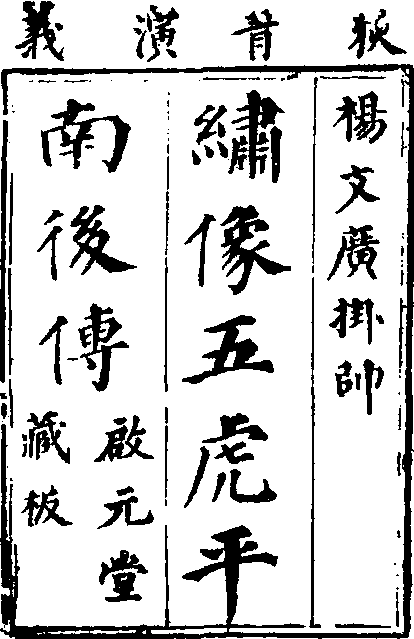 狄青演義
楊文廣掛帥
繡像五虎平
南後傳
啟元堂
藏板